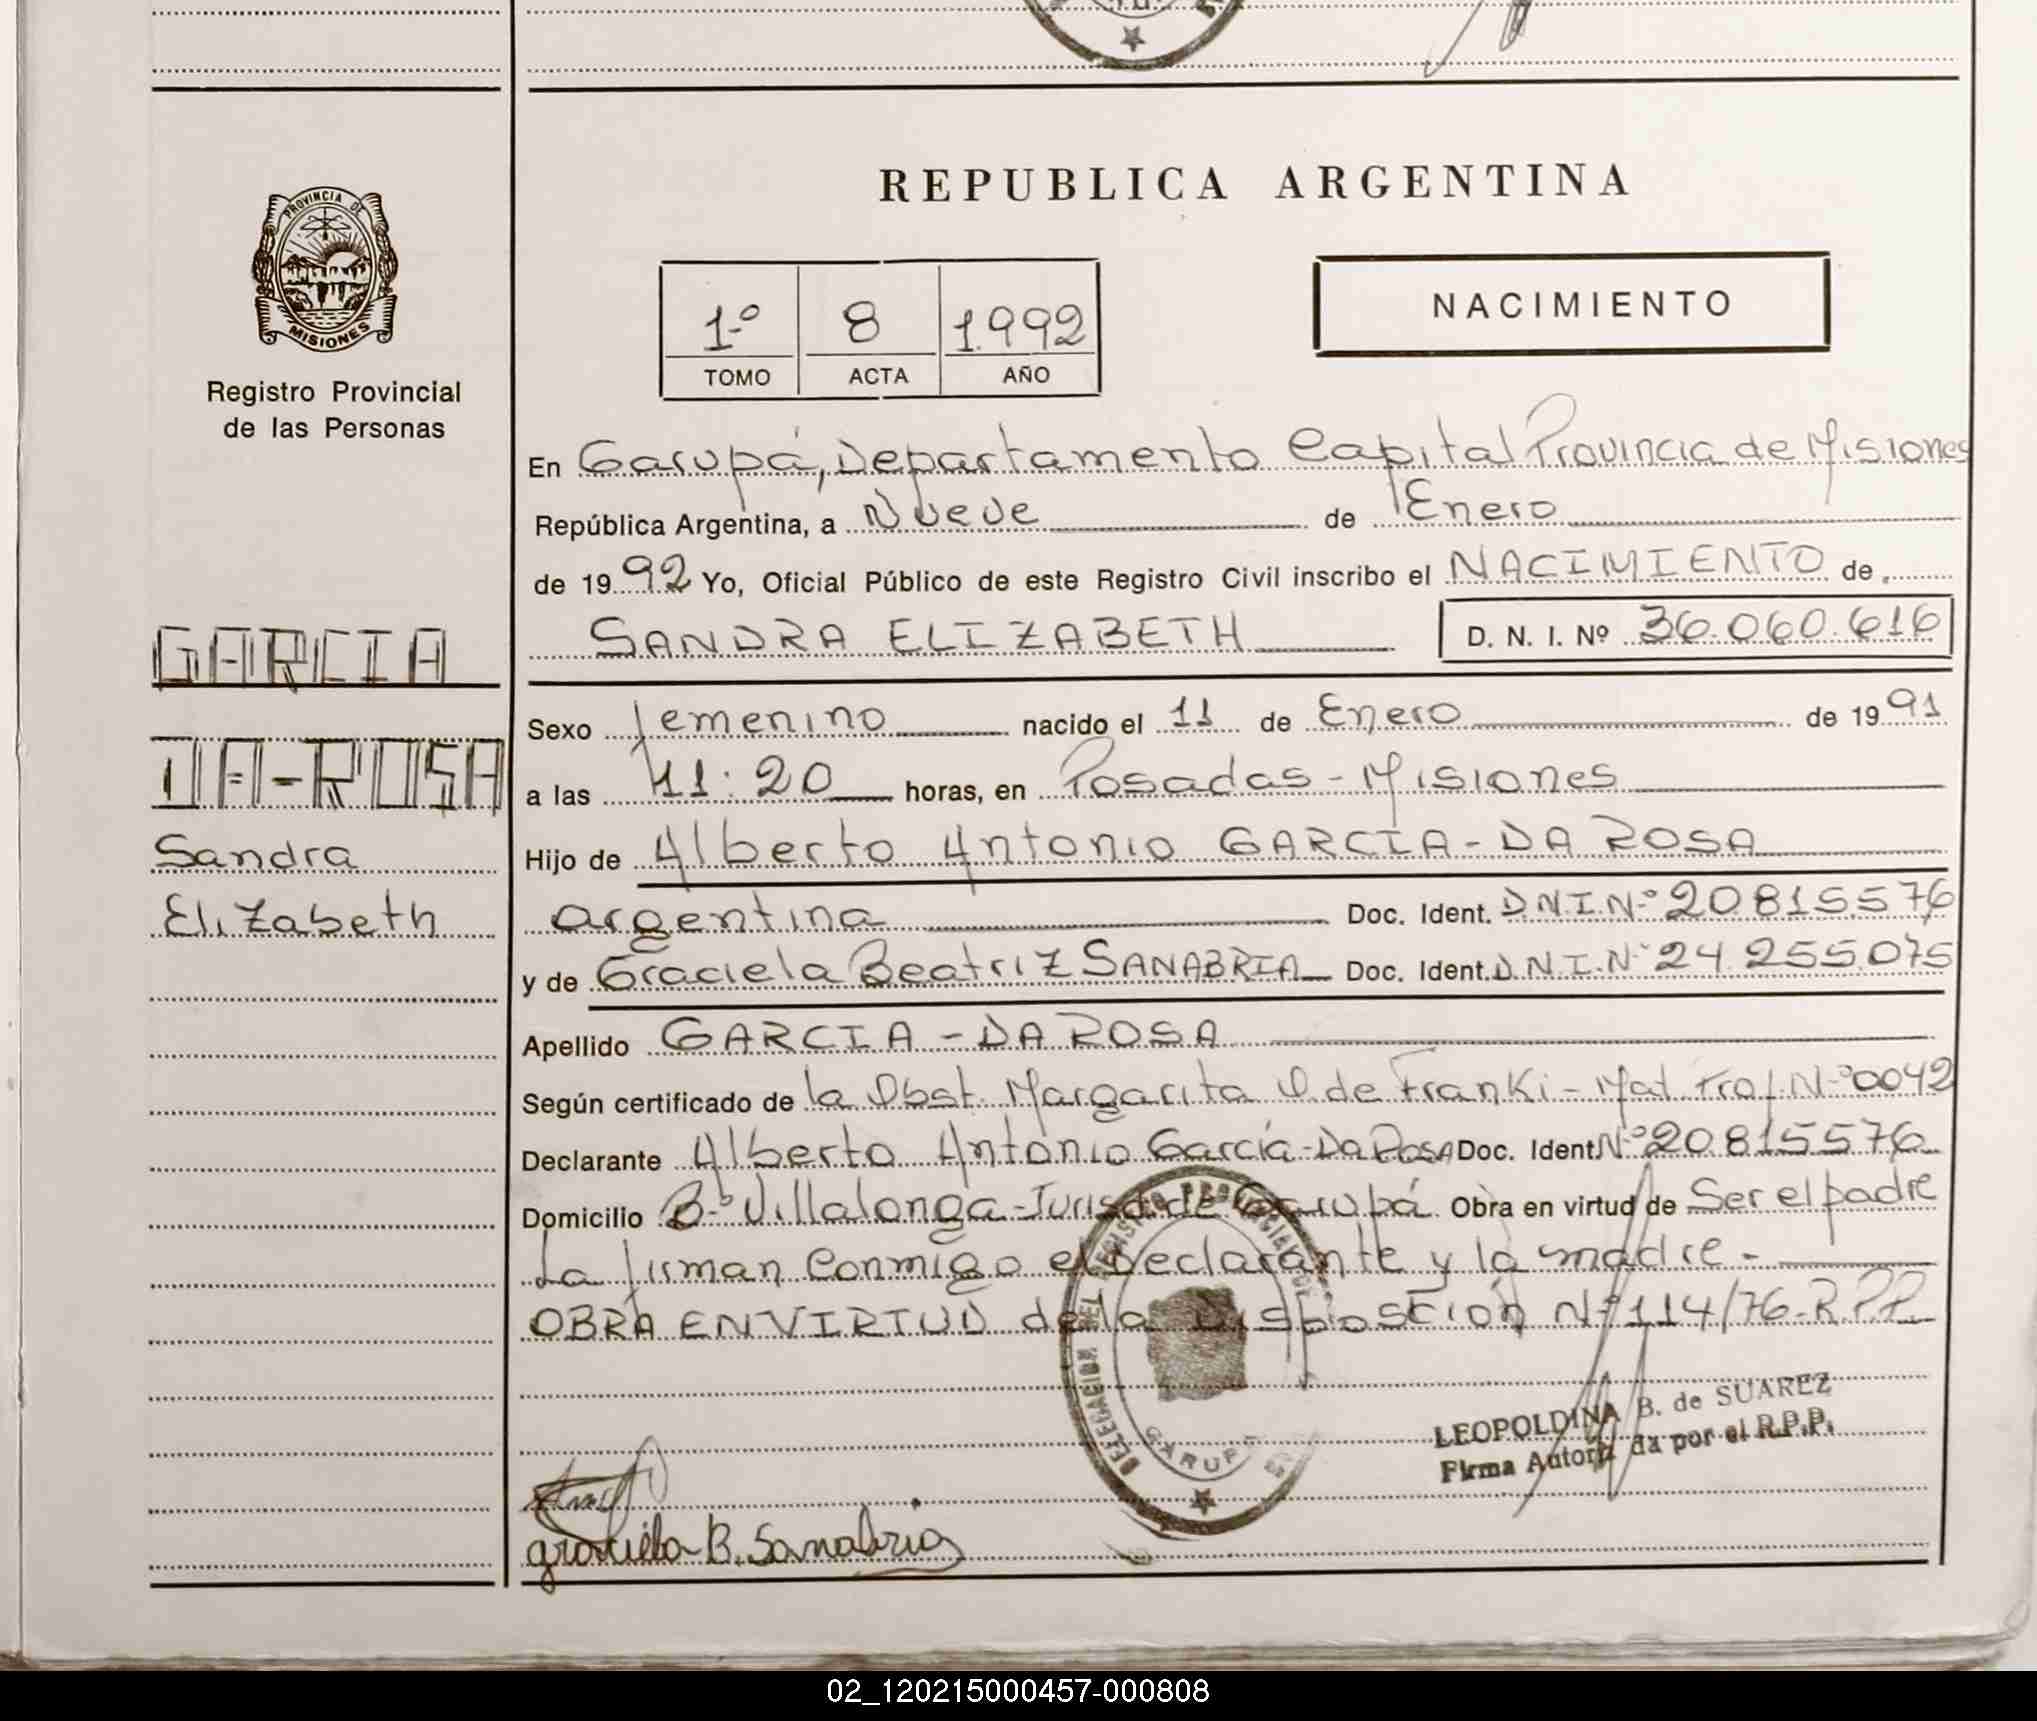 REPUBLICA ARGENTINA
PROVINCIA DE
MISIONES
Registro Provincial
de las Personas
1º 8 1.992
TOMO ACTA AÑO
NACIMIENTO
En Garupá, Departamento Capital Provincia de Misiones
República Argentina, a Nueve de Enero
de 1992 Yo, Oficial Público de este Registro Civil inscribo el NACIMIENTO de
SANDRA ELIZABETH D. N. I. Nº 36.060.616
GARCIA
DA-ROSA
Sandra
Elizabeth
Sexo femenino nacido el 11 de Enero de 1991
a las 11:20 horas, en Posadas - Misiones
Hijo de Alberto Antonio GARCIA - DA ROSA
argentina Doc. Ident. D.N.I. Nº 20.815.576
y de Graciela Beatriz SANABRIA Doc. Ident. D.N.I. Nº 24.255.075
Apellido GARCIA - DA ROSA
Según certificado de la Obst. Margarita O. de Franki - Mat. Prof. Nº 0042
Declarante Alberto Antonio García - Da Rosa Doc. Ident. Nº 20.815.576
Domicilio Bº Villalonga - Jurisd. de Garupá Obra en virtud de Ser el padre
La firman conmigo el declarante y la madre.-
OBRA EN VIRTUD de la Disposcion Nº 114/76-R.P.P.
DELEGACION DEL REGISTRO PROVINCIAL DE
GARUPA
LEOPOLDINA B. de SUAREZ
Firma Autoriz da por el R.P.P.
graciela B. Sanabria
02_120215000457-000808